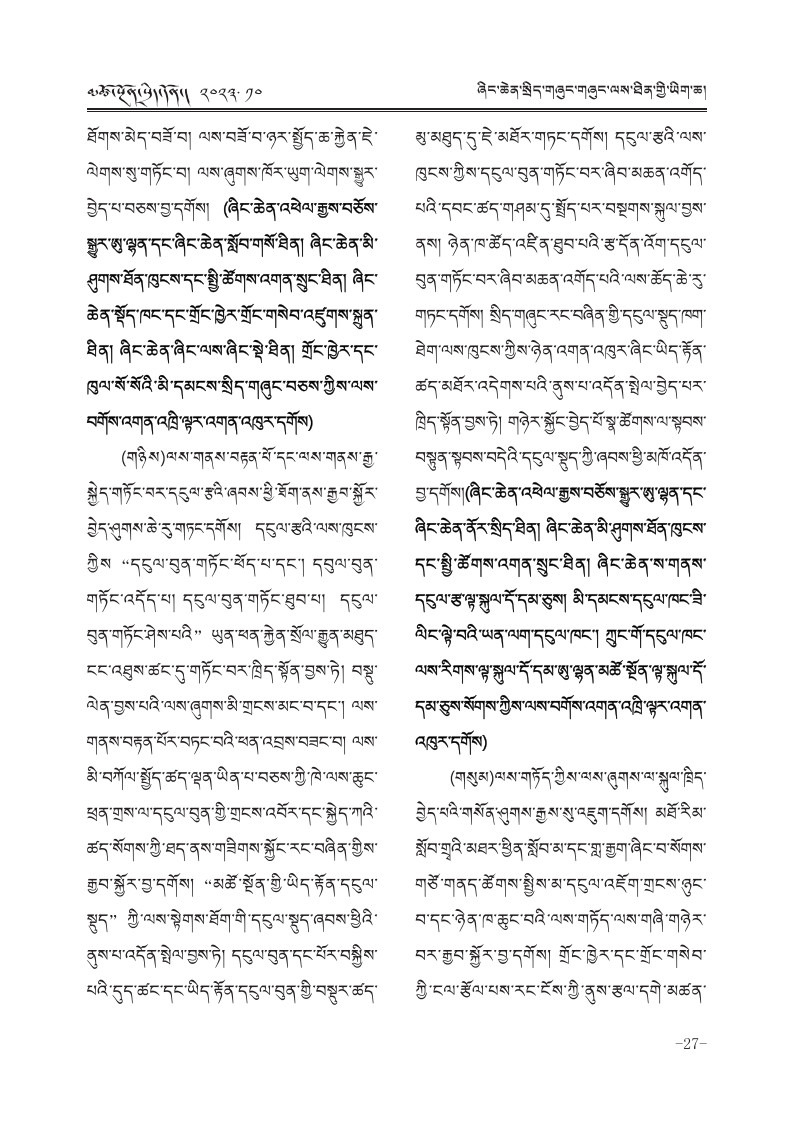 ༢༠༢༣.༡༠
ཞིང་ཆེན་སྲིད་གཞུང་གཞུང་ལས་ཐིན་གྱི་ཡིག་ཆ།
ཐོགས་མེད་བཟོ་བ། ལས་བཟོ་བ་ཉར་སྤྱོད་ཆ་རྐྱེན་ཇེ་
ལེགས་སུ་གཏོང་བ། ལས་ཞུགས་ཁོར་ཡུག་ལེགས་སྒྱུར་
བྱེད་པ་བཅས་བྱ་དགོས། (ཞིང་ཆེན་འཕེལ་རྒྱས་བཅོས་
སྒྱུར་ཨུ་ལྷན་དང་ཞིང་ཆེན་སློབ་གསོ་ཐིན། ཞིང་ཆེན་མི་
ཤུགས་ཐོན་ཁུངས་དང་སྤྱི་ཚོགས་འགན་སྲུང་ཐིན། ཞིང་
ཆེན་སྡོད་ཁང་དང་གྲོང་ཁྱེར་གྲོང་གསེབ་འཛུགས་སྐྲུན་
ཐིན། ཞིང་ཆེན་ཞིང་ལས་ཞིང་སྡེ་ཐིན། གྲོང་ཁྱེར་དང་
ཁུལ་སོ་སོའི་མི་དམངས་སྲིད་གཞུང་བཅས་ཀྱིས་ལས་
བགོས་འགན་འཁྲི་ལྟར་འགན་འཁུར་དགོས)
(གཉིས)ལས་གནས་བརྟན་པོ་དང་ལས་གནས་རྒྱ་
སྐྱེད་གཏོང་བར་དངུལ་རྩའི་ཞབས་ཕྱི་ཐོག་ནས་རྒྱབ་སྐྱོར་
བྱེད་ཤུགས་ཆེ་རུ་གཏང་དགོས། དངུལ་རྩའི་ལས་ཁུངས་
ཀྱིས “དངུལ་བུན་གཏོང་ཕོད་པ་དང་། དབུལ་བུན་
གཏོང་འདོད་པ། དངུལ་བུན་གཏོང་ཐུབ་པ། དངུལ་
བུན་གཏོང་ཤེས་པའི” ཡུན་ཕན་རྐྱེན་སྲོལ་རྒྱུན་མཐུད་
ངང་འཐུས་ཚང་དུ་གཏོང་བར་ཁྲིད་སྟོན་བྱས་ཏེ། བསྡུ་
ལེན་བྱས་པའི་ལས་ཞུགས་མི་གྲངས་མང་བ་དང་། ལས་
གནས་བརྟན་པོར་བཏང་བའི་ཕན་འབྲས་བཟང་བ། ལས་
མི་བཀོལ་སྤྱོད་ཚད་ལྡན་ཡིན་པ་བཅས་ཀྱི་ཁེ་ལས་ཆུང་
ཕྲན་གྲས་ལ་དངུལ་བུན་གྱི་གྲངས་འབོར་དང་སྐྱེད་ཀའི་
ཚད་སོགས་ཀྱི་ཐད་ནས་གཟིགས་སྐྱོང་རང་བཞིན་གྱིས་
རྒྱབ་སྐྱོར་བྱ་དགོས། “མཚོ་སྔོན་གྱི་ཡིད་རྟོན་དངུལ་
སྡུད” ཀྱི་ལས་སྟེགས་ཐོག་གི་དངུལ་སྡུད་ཞབས་ཕྱིའི་
ནུས་པ་འདོན་སྤེལ་བྱས་ཏེ། དངུལ་བུན་དང་པོར་བསྐྱིས་
པའི་དུད་ཚང་དང་ཡིད་རྟོན་དངུལ་བུན་གྱི་བསྡུར་ཚད་
མུ་མཐུད་དུ་ཇེ་མཐོར་གཏང་དགོས། དངུལ་རྩའི་ལས་
ཁུངས་ཀྱིས་དངུལ་བུན་གཏོང་བར་ཞིབ་མཆན་འགོད་
པའི་དབང་ཚད་གཤམ་དུ་སྤྲོད་པར་བསྔགས་སྐུལ་བྱས་
ནས། ཉེན་ཁ་ཚོད་འཛིན་ཐུབ་པའི་རྩ་དོན་འོག་དངུལ་
བུན་གཏོང་བར་ཞིབ་མཆན་འགོད་པའི་ལས་ཚོད་ཆེ་རུ་
གཏང་དགོས། སྲིད་གཞུང་རང་བཞིན་གྱི་དངུལ་སྡུད་ཁག་
ཐེག་ལས་ཁུངས་ཀྱིས་ཉེན་འགན་འཁུར་ཞིང་ཡིད་རྟོན་
ཚད་མཐོར་འདེགས་པའི་ནུས་པ་འདོན་སྤེལ་བྱེད་པར་
ཁྲིད་སྟོན་བྱས་ཏེ། གཉེར་སྐྱོང་བྱེད་པོ་སྣ་ཚོགས་ལ་སྟབས་
བསྟུན་སྟབས་བདེའི་དངུལ་སྡུད་ཀྱི་ཞབས་ཕྱི་མཁོ་འདོན་
བྱ་དགོས།(ཞིང་ཆེན་འཕེལ་རྒྱས་བཅོས་སྒྱུར་ཨུ་ལྷན་དང་
ཞིང་ཆེན་ནོར་སྲིད་ཐིན། ཞིང་ཆེན་མི་ཤུགས་ཐོན་ཁུངས་
དང་སྤྱི་ཚོགས་འགན་སྲུང་ཐིན། ཞིང་ཆེན་ས་གནས་
དངུལ་རྩ་ལྟ་སྐུལ་དོ་དམ་ཅུས། མི་དམངས་དངུལ་ཁང་ཟི་
ལིང་ལྟེ་བའི་ཡན་ལག་དངུལ་ཁང་། ཀྲུང་གོ་དངུལ་ཁང་
ལས་རིགས་ལྟ་སྐུལ་དོ་དམ་ཨུ་ལྷན་མཚོ་སྔོན་ལྟ་སྐུལ་དོ་
དམ་ཅུས་སོགས་ཀྱིས་ལས་བགོས་འགན་འཁྲི་ལྟར་འགན་
འཁུར་དགོས)
(གསུམ)ལས་གཏོད་ཀྱིས་ལས་ཞུགས་ལ་སྐུལ་ཁྲིད་
བྱེད་པའི་གསོན་ཤུགས་རྒྱས་སུ་འཇུག་དགོས། མཐོ་རིམ་
སློབ་གྲྭའི་མཐར་ཕྱིན་སློབ་མ་དང་གླ་རྒྱག་ཞིང་བ་སོགས་
གཙོ་གནད་ཚོགས་སྤྱིས་མ་དངུལ་འཇོག་གྲངས་ཉུང་
བ་དང་ཉེན་ཁ་ཆུང་བའི་ལས་གཏོད་ལས་གཞི་གཉེར་
བར་རྒྱབ་སྐྱོར་བྱ་དགོས། གྲོང་ཁྱེར་དང་གྲོང་གསེབ་
ཀྱི་ངལ་རྩོལ་པས་རང་ངོས་ཀྱི་ནུས་རྩལ་དགེ་མཚན་
-27-